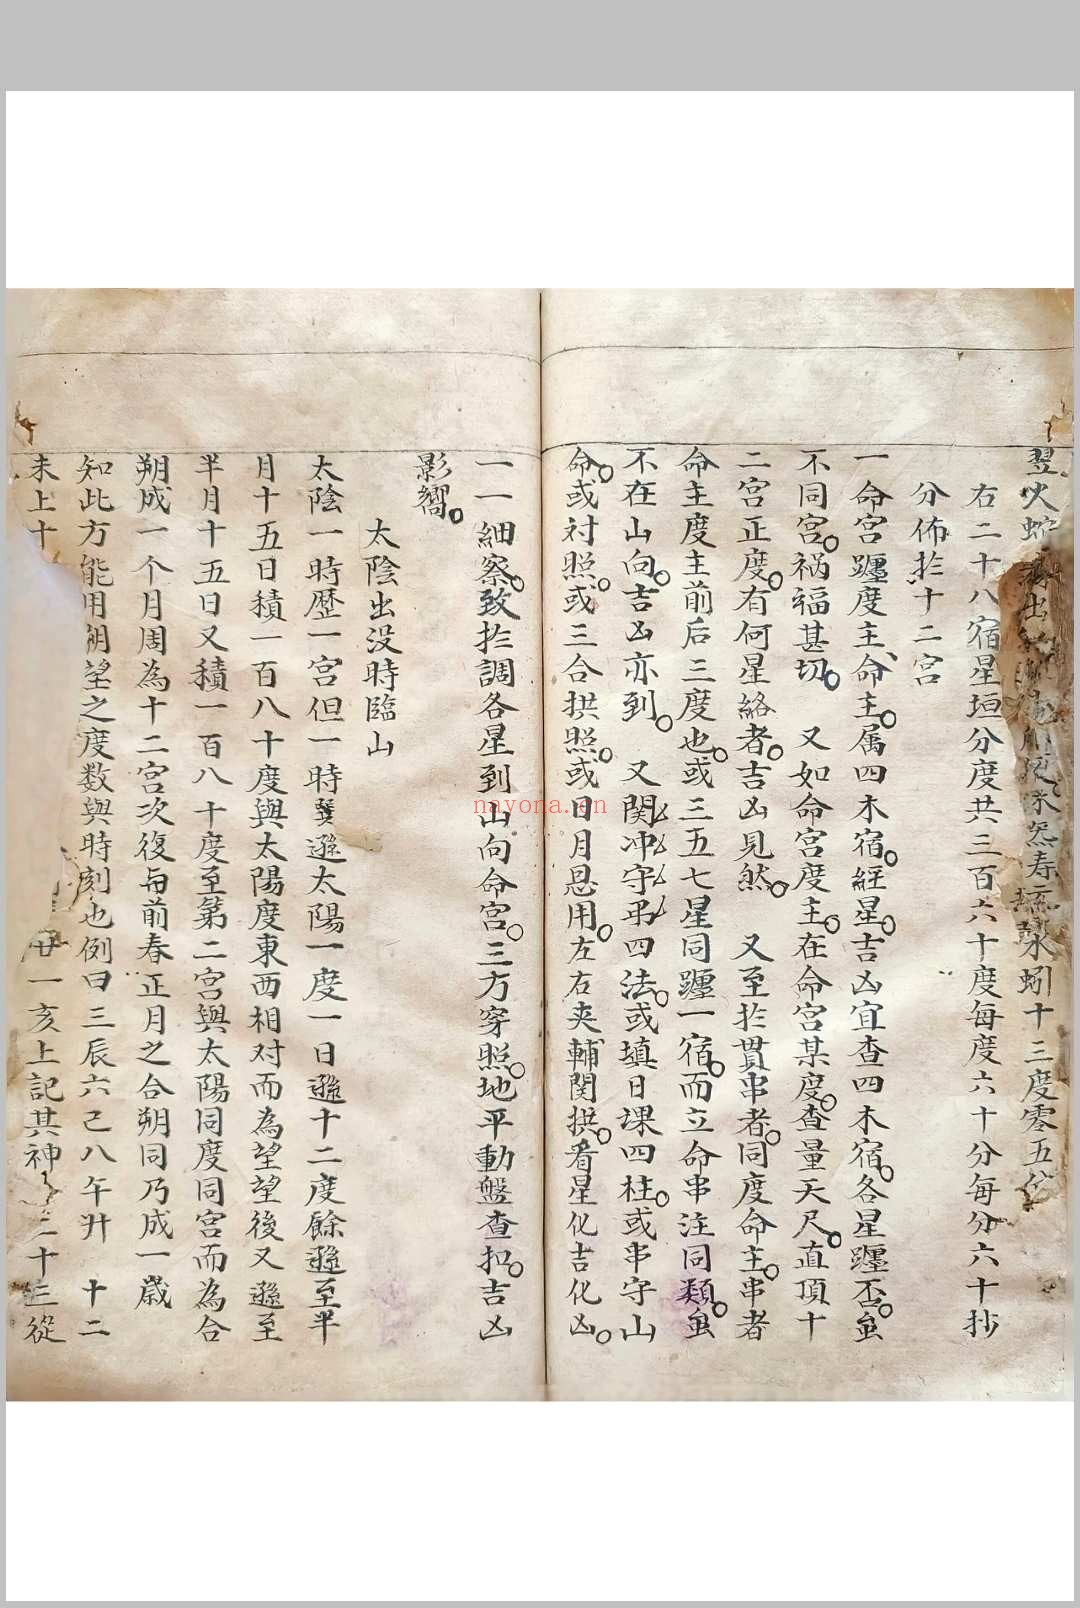 翌火蛇
水蚓十二度零五分
右二十八宿星垣分度共三百六十度每度六十分每分六十抄
分佈扵十二宮
一命宮躔度主命主属四木宿経星吉凶宜查四木宿各星躔否
不同宮祸福甚切 又如命宮度主在命宮某度查量天尺直頂十
二宮正度有何星絡者吉凶見然 又至扵貫串者同度命主串者
命主度主前后三度也或三五七星同躔一宿而立命串注同類
不在山向吉凶亦到 又関冲守弔四法或填日課四柱或串守山
命或対照或三合拱照或日月恳用左右夹輔関拱看星化吉化凶
一一細察致扵調各星到山向命宮三方穿照地平動盤查扣吉凶
影嚮
太陰出没時臨山
太陰一時歴一宮但一時𨒪遜太陽一度一日遜十二度餘遜至半
月十五日積一百八十度與太陽度東西相对而為望望後又遜至
半月十五日又積一百八十度至第二宮與太陽同度同宮而為合
朔成一个月周為十二宮次復与前春正月之合朔同乃成一歲
知此方能用朔望之度数與時刻也例曰三辰六己八午升 十二
未上十
廿一亥上記其神
三十三從
nayona.cn